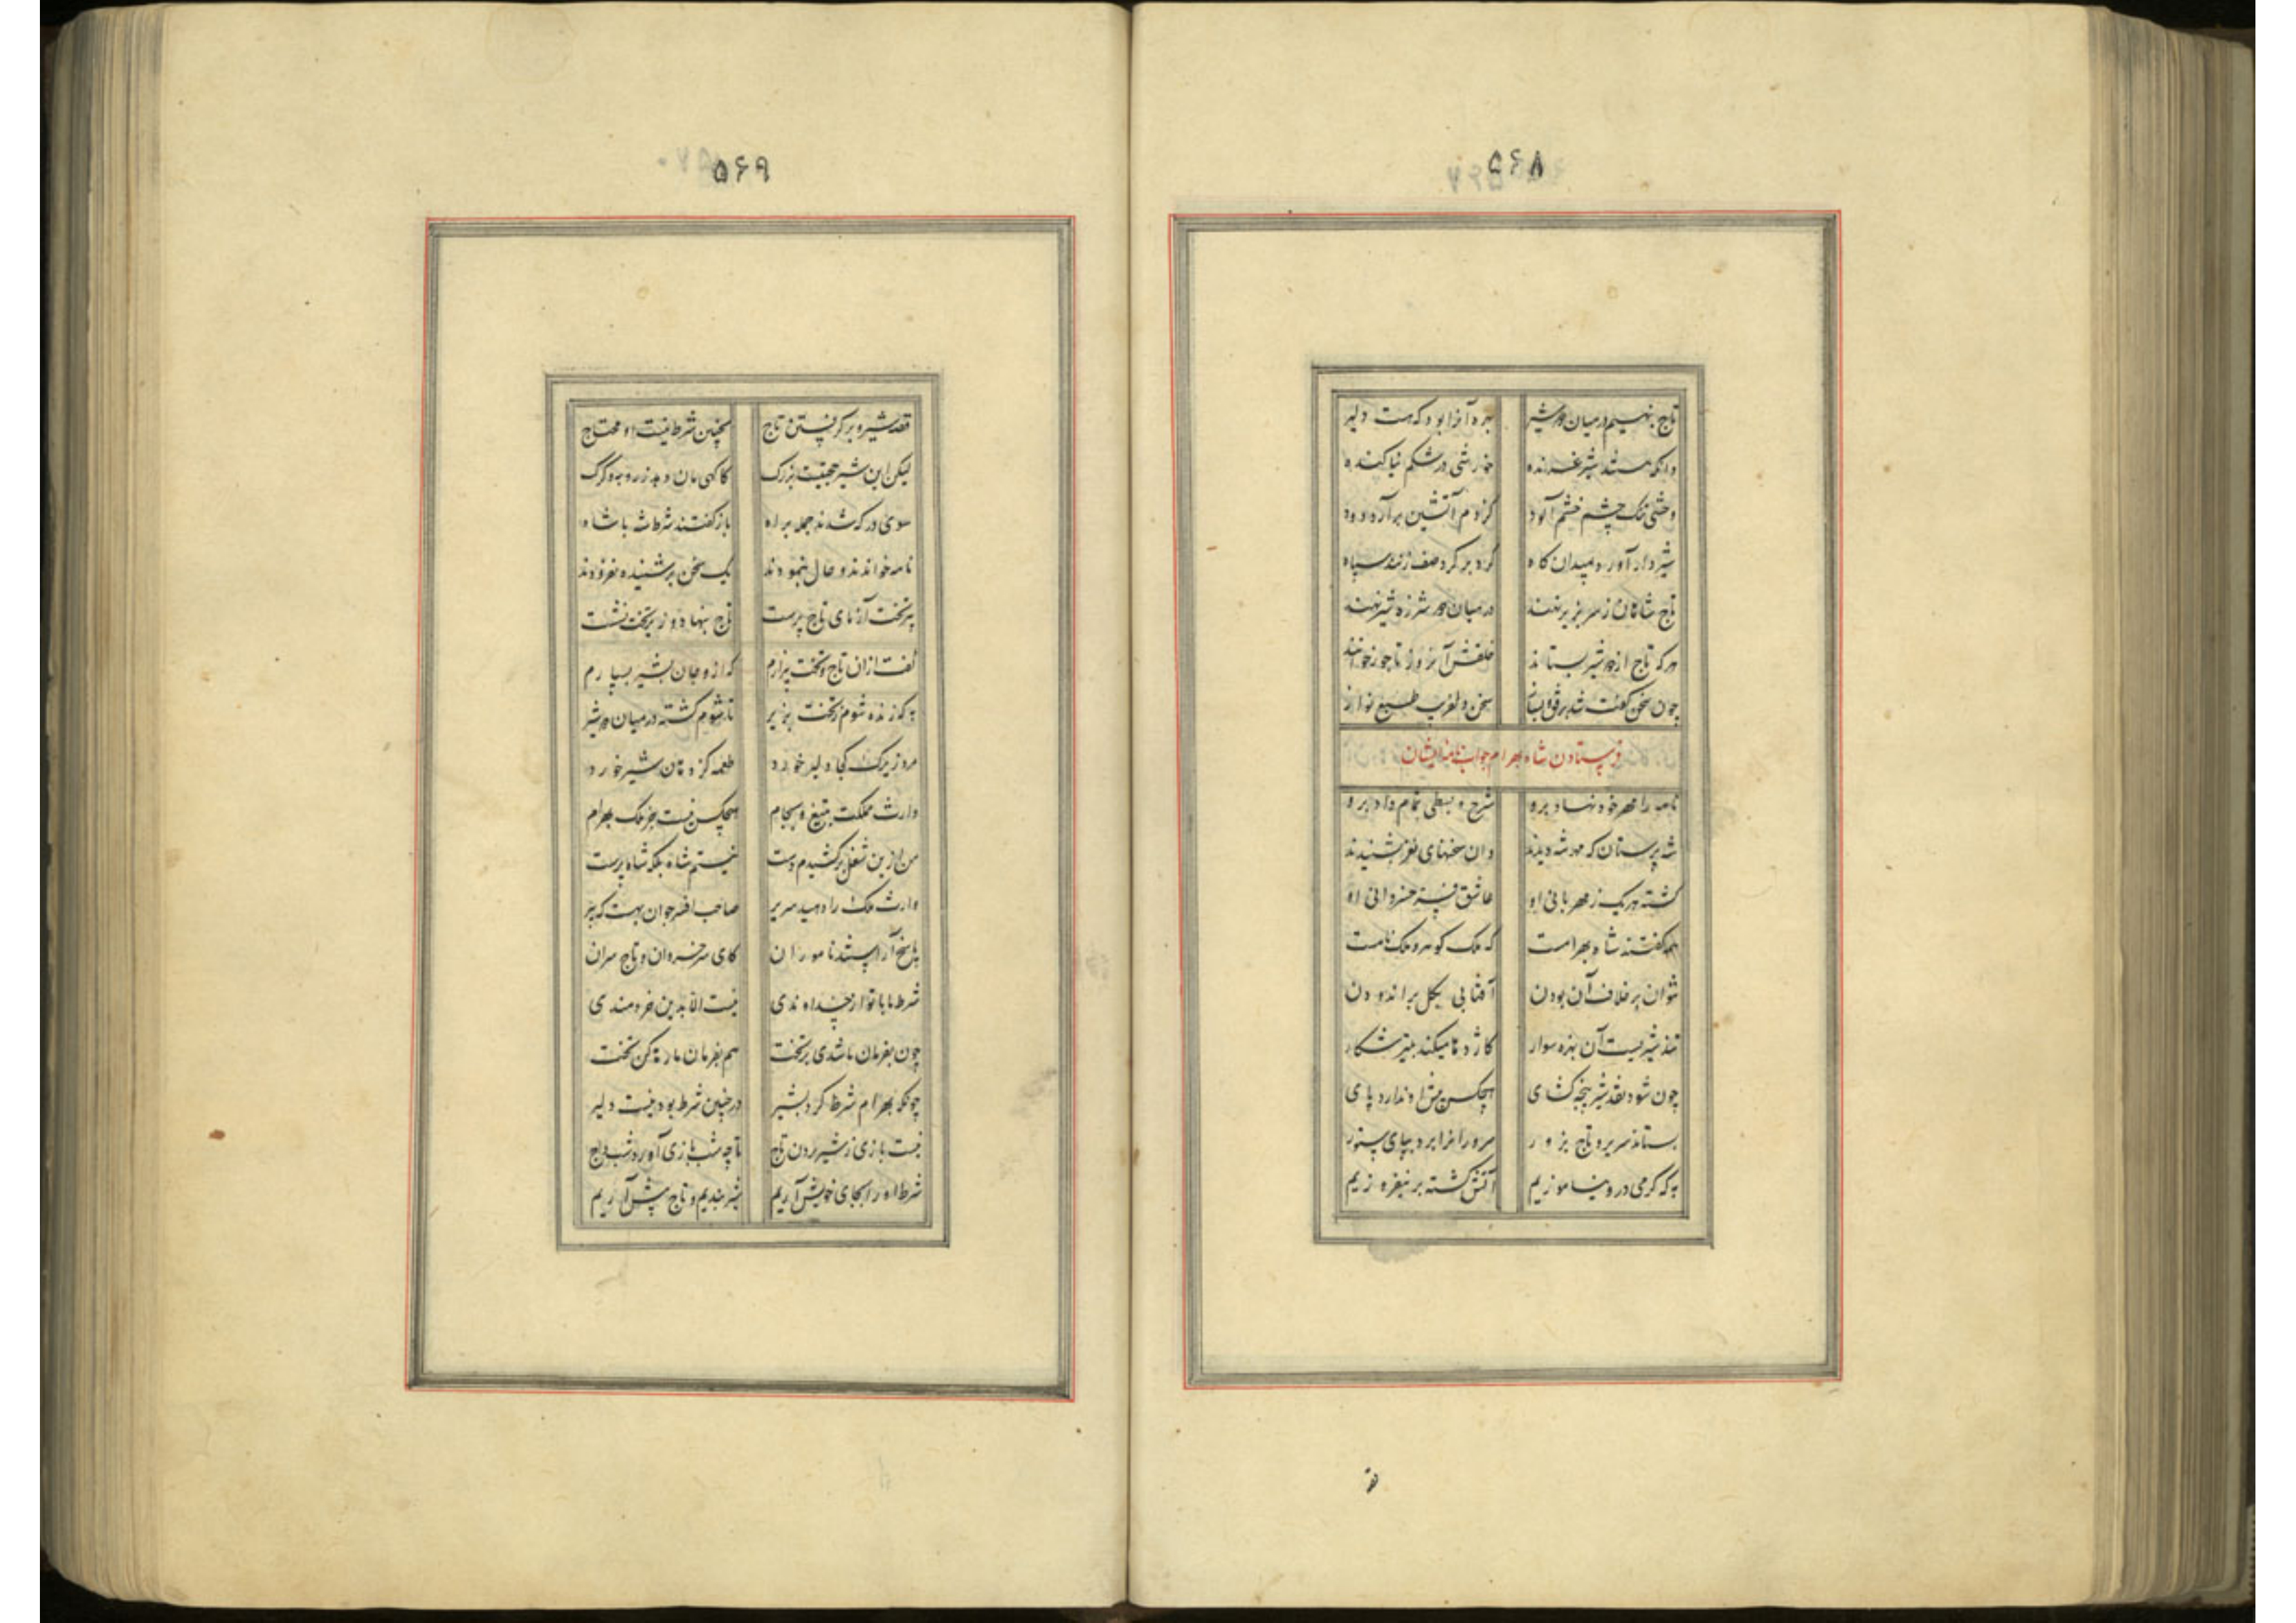 ۵۶۸
تاج بنهیم در میان دو شیر بهره آنرا بود که هست دلیر
وانکه هستند شیر غرنده خورشی در شکم نیاکنده
وحشی تنگ چشم خشم آلود کز دم آتشین برآرد دود
شیردار آورد بمیدان گاه گرد بر گرد صف زنند سپاه
تاج شاهان ز سر بزیر نهند در میان دو شرزه شیر نهند
هر که تاج از دو شیر بستاند خلقش آنروز تاجور خواند
چون سخن گفت شد برفق و بساز سخن دلفریب طبع نواز
فرستادن شاه بهرام جواب نامه ایشان
نامه را مهر خود نهاد برو شرح و بسطی تمام داد برو
شه پرستان که مهر شه دیدند وان سخنهای نغز بشنیدند
گشته هر یک ز مهربانی او عاشق فره خسروانی او
همه گفتند شاه بهرامست که ملک گوهر و ملک نامست
نتوان بر خلاف آن بودن آفتابی بگل براندودن
تند شیریست آن نبرده سوار کاژدها میکند بتیر شکار
چون شود تند شیر پنجه گشای هیچکس پیش او ندارد پای
بستاند سریر و تاج بزور سرورانرا برد بپای ستور
به که گرمی درو نیاموزیم آتش گشته بر نیفروزیم
۵۶۹
قصه شیر و برگرفتن تاج بچنین شرط نیست او محتاج
لیکن این شیر حجتیست بزرگ کاگهی مان دهد ز روبه و گرگ
سوی درگه شدند جمله براه باز گفتند شرط شاه با شاه
نامه خواندند و حال بنمودند یک سخن بر شنیده نفزودند
پیر تخت آزمای تاج پرست تاج بنهاد و زیر تخت نشست
گفت ازان تاج و تخت بیزارم که ازو جان بشیر بسپارم
به که زنده شوم ز تخت بزیر تا شوم کشته در میان دو شیر
مرد زیرک کجا دلیر خورد طعمه کز دهان شیر خورد
وارث مملکت بتیغ و بجام هیچکس نیست جز ملک بهرام
من ازین شغل برکشیدم دست نیستم شاه بلکه شاه پرست
وارث ملک را دهید سریر صاحب افسر جوان بهست که پیر
پاسخ آراستند ناموران کای سر خسروان و تاج سران
شرط ما با تو از خداوندی نیست الا بدین خردمندی
چون بفرمان ما شدی بر تخت هم بفرمان ما رها کن تخت
چونکه بهرام شرط کرد بشیر در چنین شرط بود نیست دلیر
نیست بازی ز شیر بردن تاج تا چه شب بازی آورد شب داج
شرط او را بجای خویش آریم شیر بندیم و تاج پیش آریم